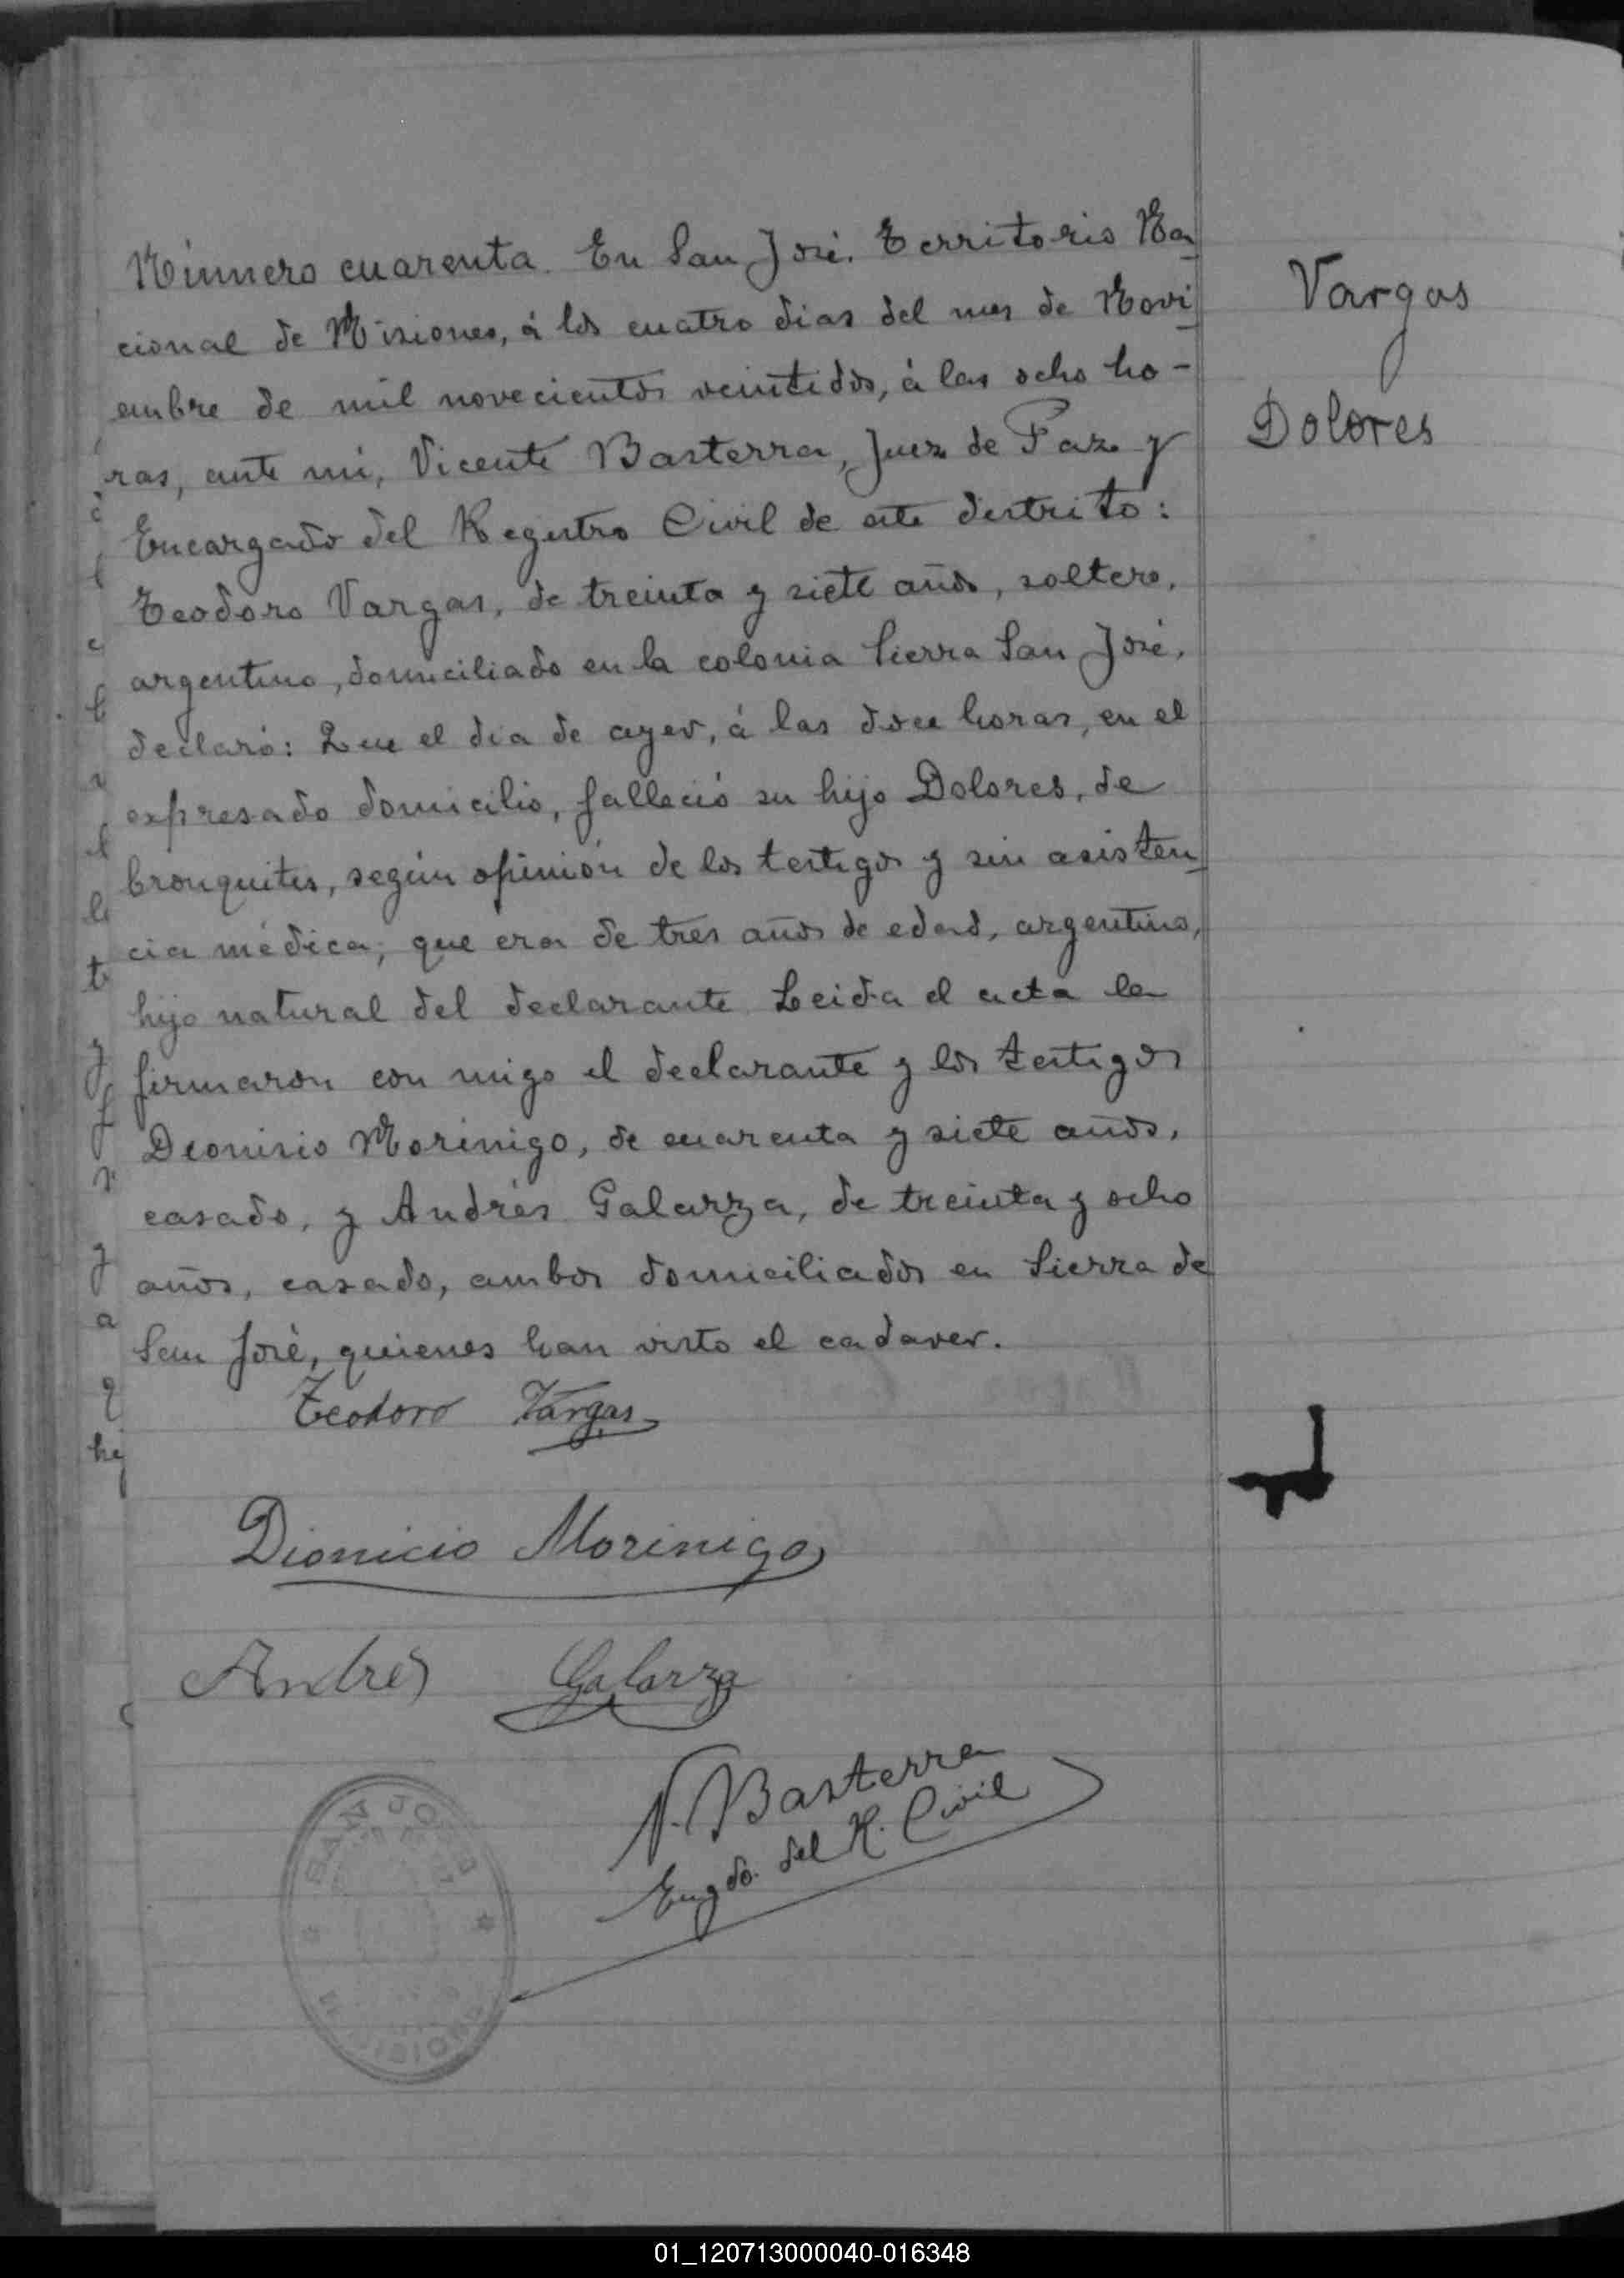 Número cuarenta. En San José. Territorio Na
cional de Misiones, á los cuatro dias del mes de Novi
embre de mil novecientos veintidos, á las ocho ho-
ras, ante mi, Vicente Basterra, Juez de Paz y
Encargado del Registro Civil de este distrito:
Teodoro Vargas, de treinta y siete años, soltero,
argentino, domiciliado en la colonia Sierra San José,
declaró: Que el dia de ayer, á las doce horas, en el
expresado domicilio, falleció su hijo Dolores, de
bronquitis, según opinión de los testigos y sin asisten
cia médica; que era de tres años de edad, argentino,
hijo natural del declarante. Leida el acta la
firmaron con migo el declarante y los testigos
Dionisio Morinigo, de cuarenta y siete años,
casado, y Andrés Galarza, de treinta y ocho
años, casado, ambos domiciliados en Sierra de
San José, quienes han visto el cadaver.
Teodoro Vargas
Dionicio Morinigo
Andres Galarza
V. Basterra
Engdo. del R. Civil
SAN JOSE
MISIONES
Vargas
Dolores
01_120713000040-016348